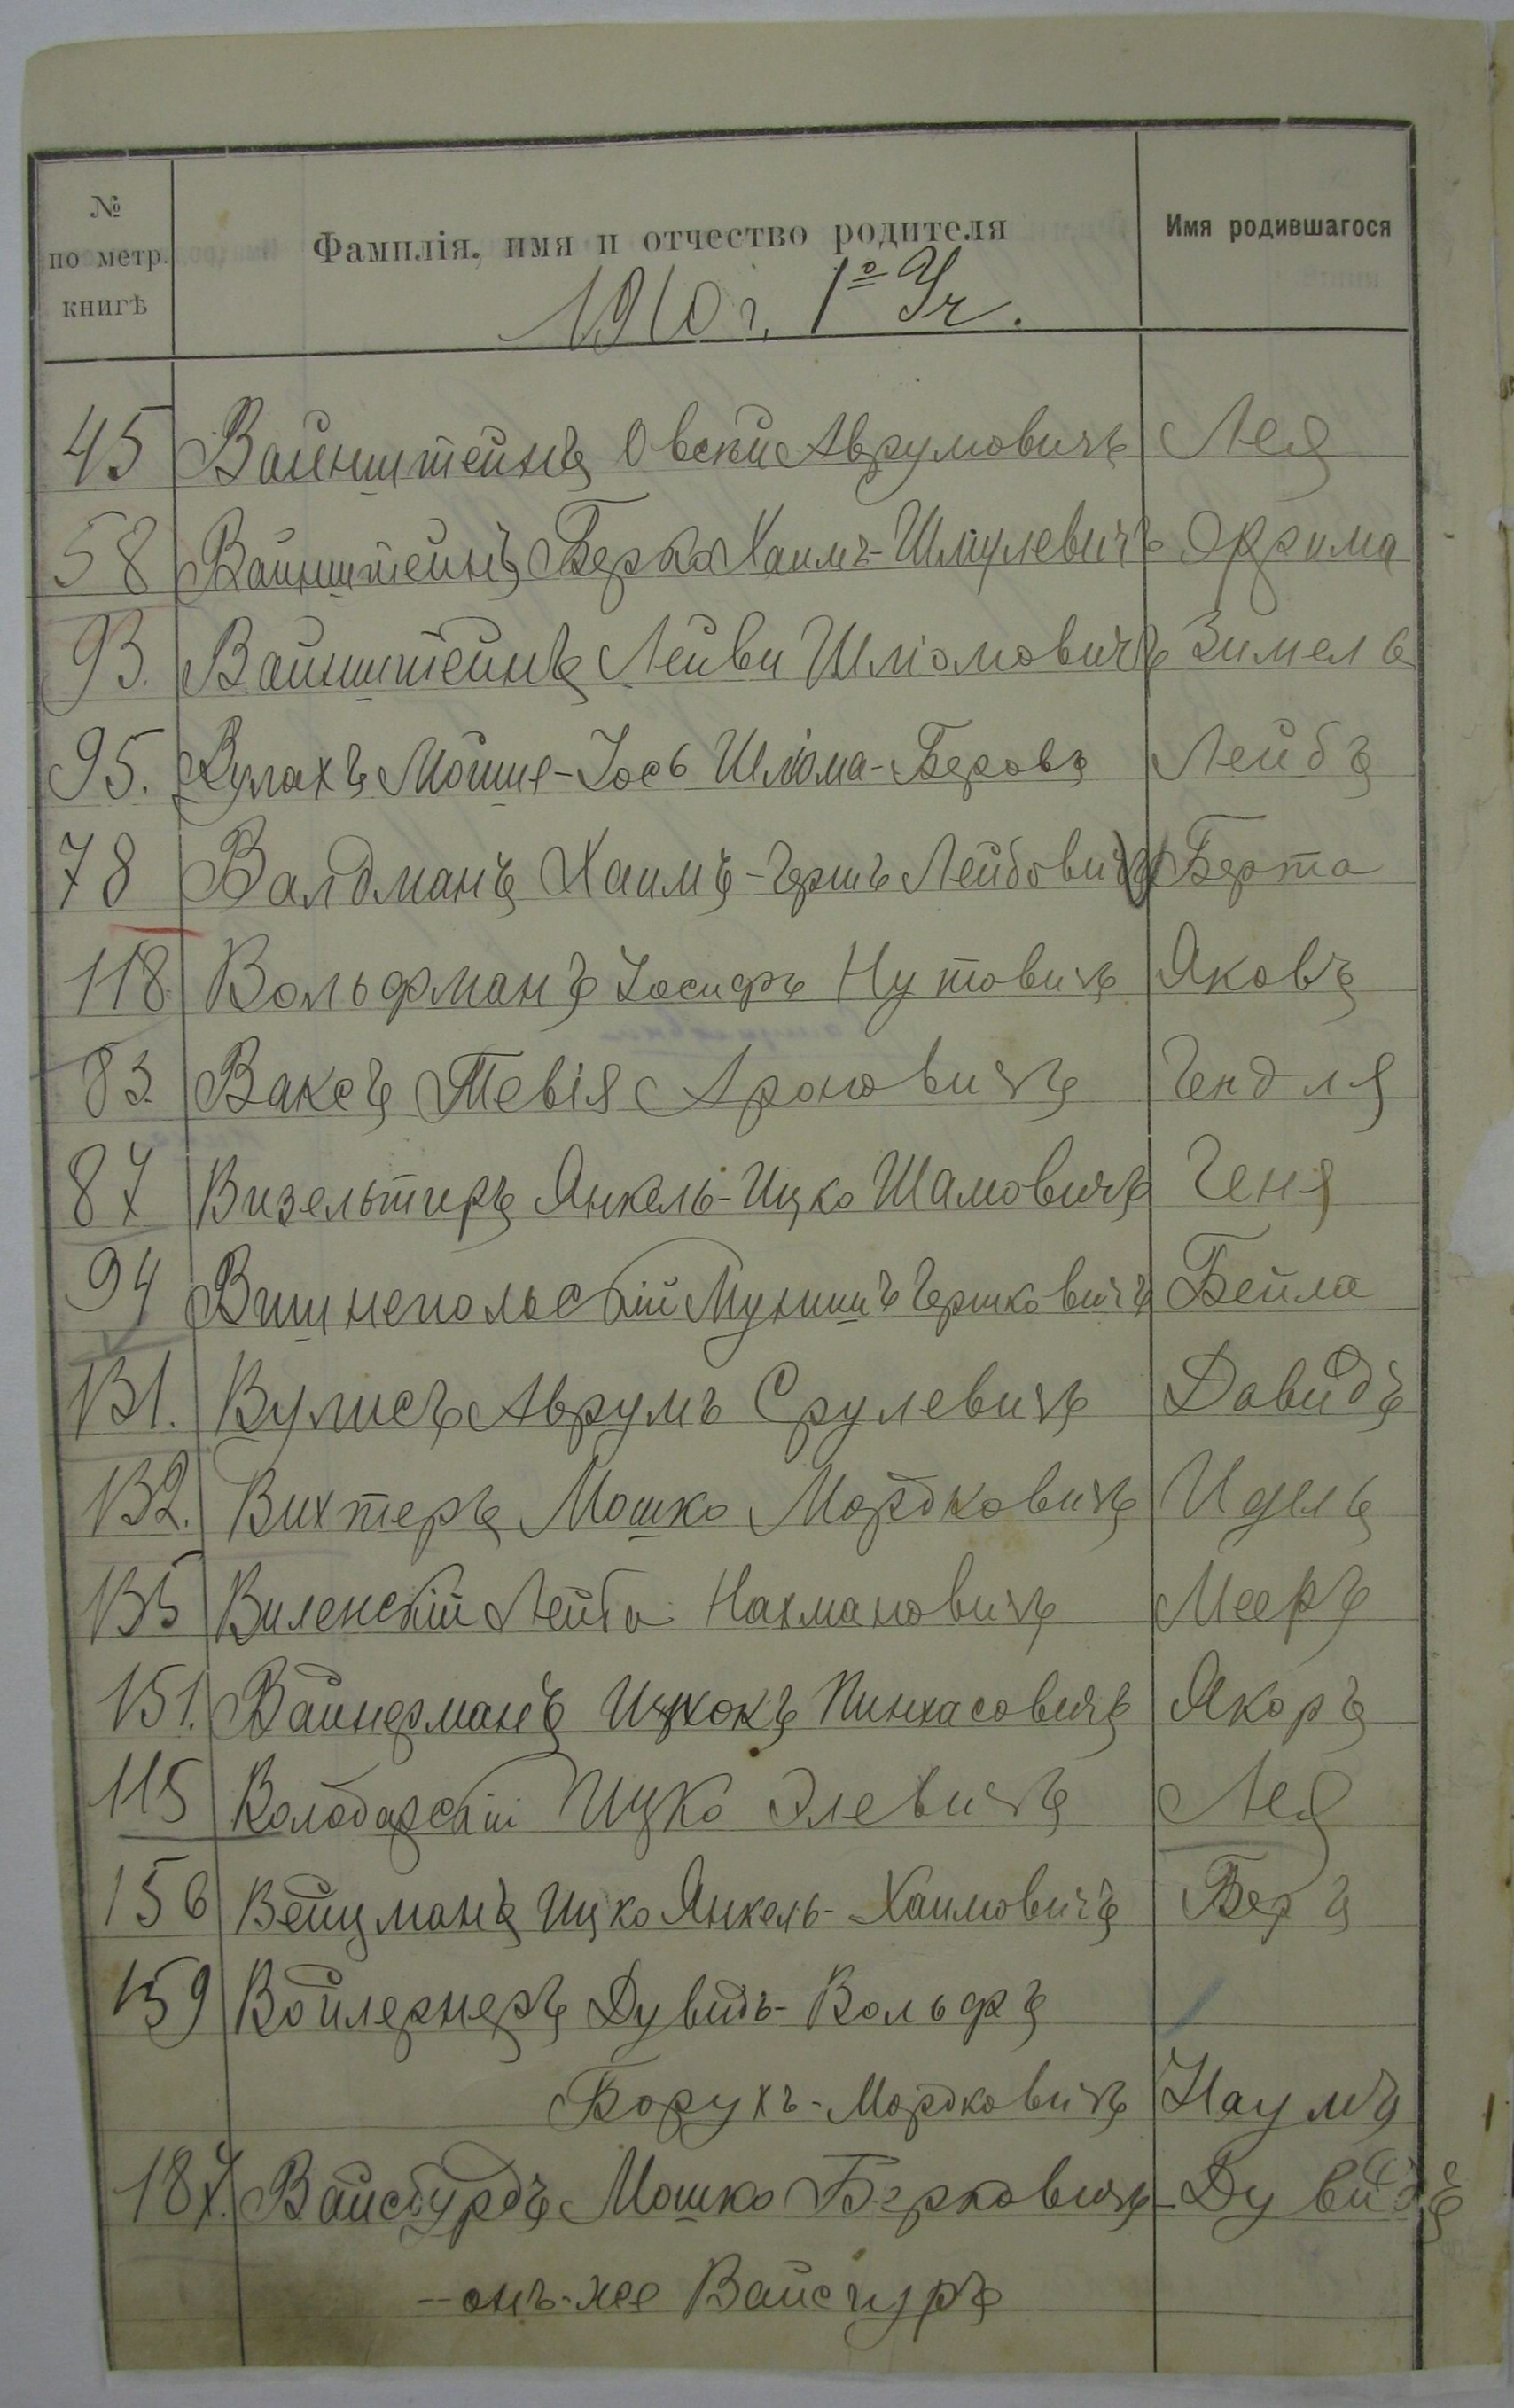 № по метр. книгѣ | Фамилія, имя и отчество родителя | Имя родившагося
1910 г. 1º Уч.
45 Вайнштейнъ Овсей Аврумовичъ Лея
58 Вайнштейнъ Берко Хаимъ-Шмулевичъ Фрима
93. Вайнштейнъ Лейви Шліомовичъ Зимель
95. Вулахъ Мойше-Іось Шліома-Беровъ Лейбъ
78 Валдманъ Хаимъ-Гершъ Лейбовичъ Берта
118. Вольфманъ Іосифъ Нутовичъ Яковъ
83. Ваксъ Тевія Ароновичъ Гендля
87 Визельтиръ Янкель-Ицко Шамовичъ Геня
94 Вишнепольскій Мунишъ Гершковичъ Бейла
131. Вулисъ Аврумъ Срулевичъ Давидъ
132. Вихтеръ Мошко Мордковичъ Идель
135 Виленскій Лейба Нахмановичъ Мееръ
151. Вайнерманъ Ицхокъ Пинхасовичъ Якоръ
115 Володарскій Ицко Элевичъ Лея
156 Вейцманъ Ицко Янкель-Хаимовичъ Беръ
159 Войлернеръ Дувидъ-Вольфъ
Борухъ-Мордковичъ Наумъ
187. Вайсбурдъ Мошко Берковичъ Дувидъ
-онъ-же Вайсгуръ